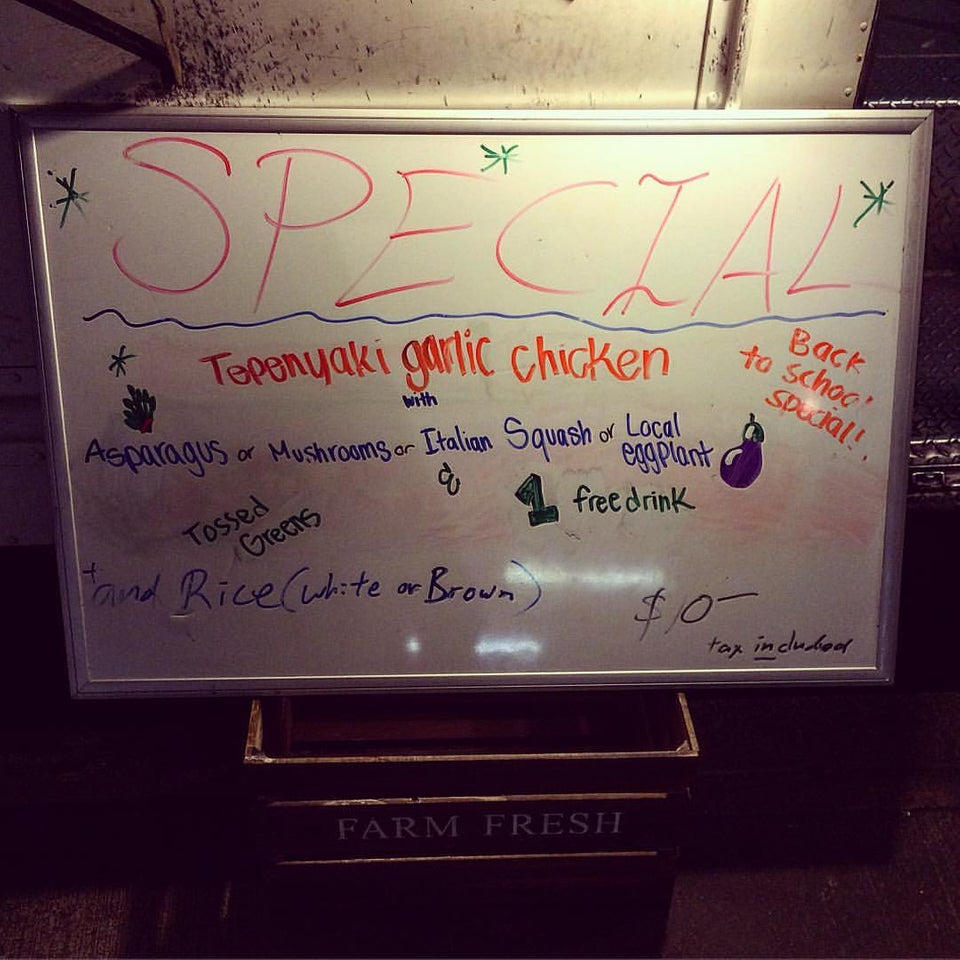 SPECIAL
Tepenyaki garlic chicken
Back
to school
special!
with
Asparagus or Mushrooms or Italian Squash or Local
eggplant
&
1 free drink
Tossed
Greens
+and Rice (white or Brown)
$10—
tax included
FARM FRESH